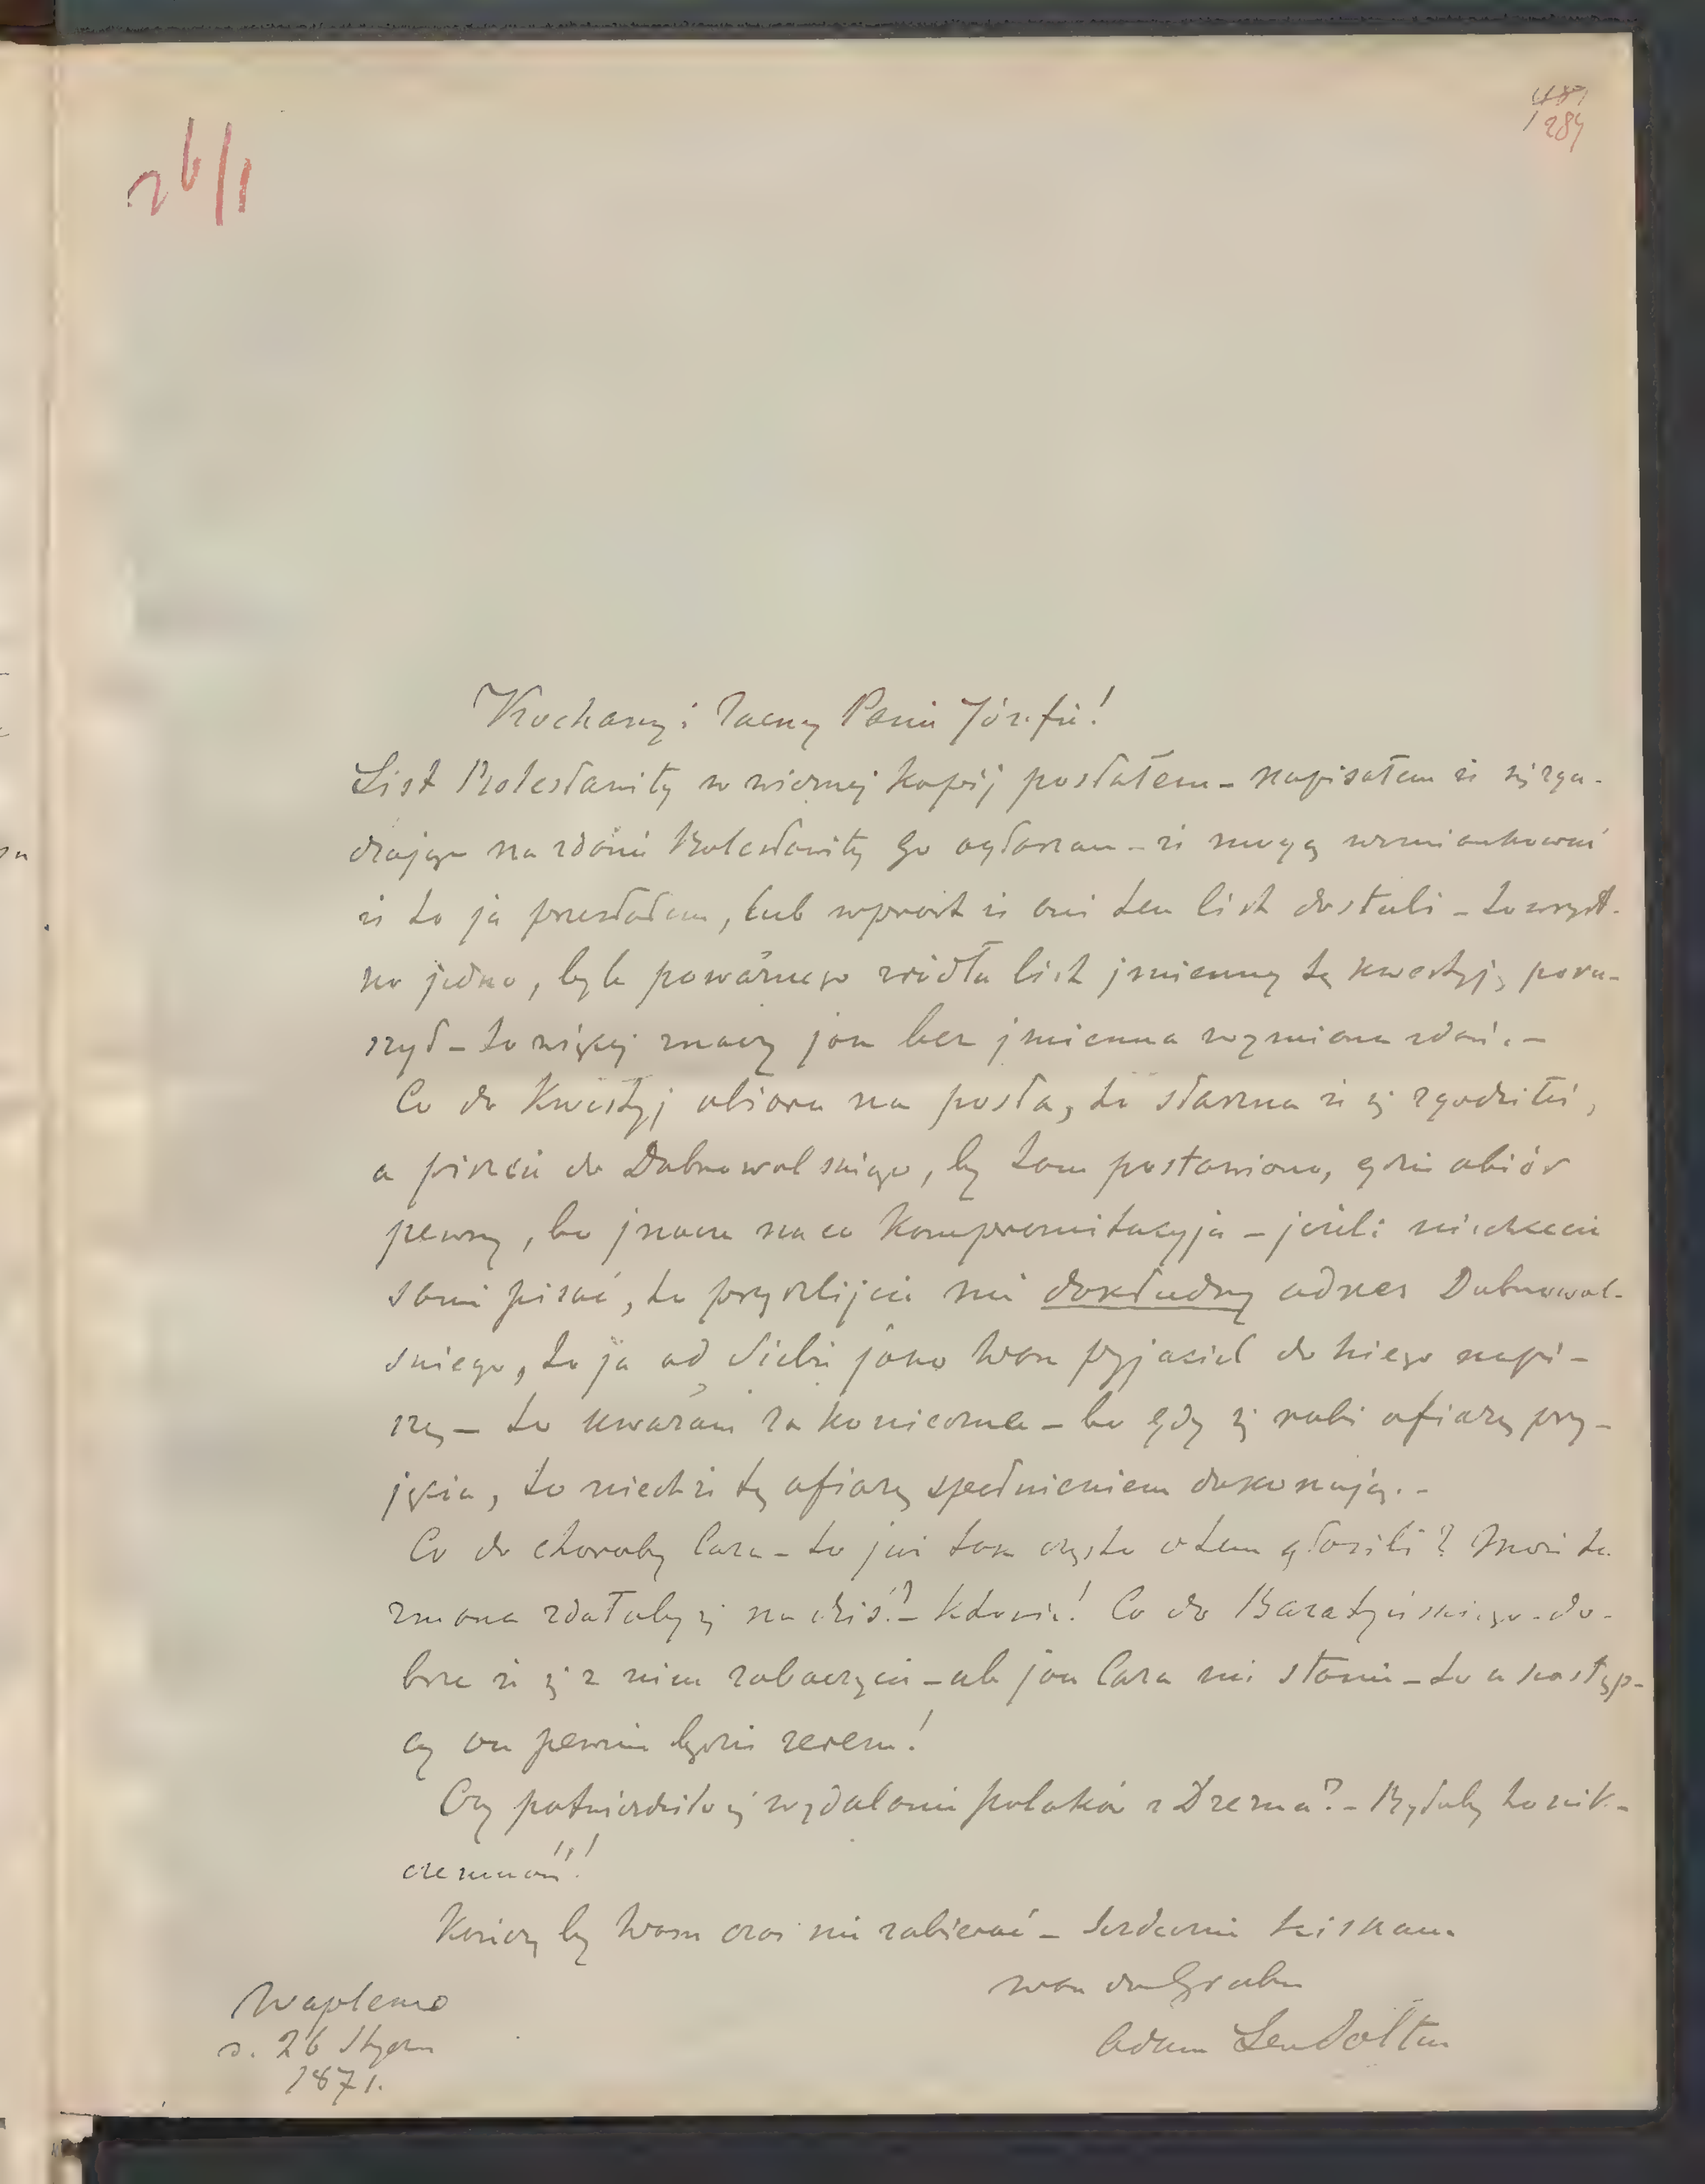 26/1
284
Kochany i Zacny Panie Józefie!
List Bolesławity w wiernej kopij posłałem – napisałem że się zga-
dzając na zdanie Bolesławity go ogłaszam – że mogą wzmiankować
że to ja przesłałem, lub wprost że oni ten list dostali – to wszyst-
ko jedno, byle poważnego źródła list jmienny tę kwestyję poru-
szył – to więcej znaczy jak bez jmienna wymiana zdań. –
Co do Kwestyj obioru na posła, to słuszna że się zgodziłeś,
a piszcie do Dobrowolskiego, by tam postawiono, gdzie obiór
pewny, bo jnaczej na co kompromitacyja – jeżeli niechcecie
sami pisać, to przyszlijcie mi dokładny adres Dobrowol-
skiego, to ja od siebie jako Wasz przyjaciel do niego napi-
szę – to uważam za konieczne – bo gdy się robi ofiarę przy-
jęcia, to niechże tę ofiarę spełnieniem dokonają. –
Co do choroby Cara – to już tak często o tem głosili? Może ta
zmiana zdałaby się na dziś? – któż wie! Co do do-
brze że się z nim zobaczycie – ale jak Cara nie stanie – to u następ-
cy on pewnie będzie zerem!
Czy potwierdziło się wydalenie polaków z Drezna? – Byłaby to nik-
czemność!!
Kończę by Wam czas nie zabierać – Serdecznie ściskam.
Wasz do Grobu
Adam
Waplewo
d. 26 Stycz
1871.